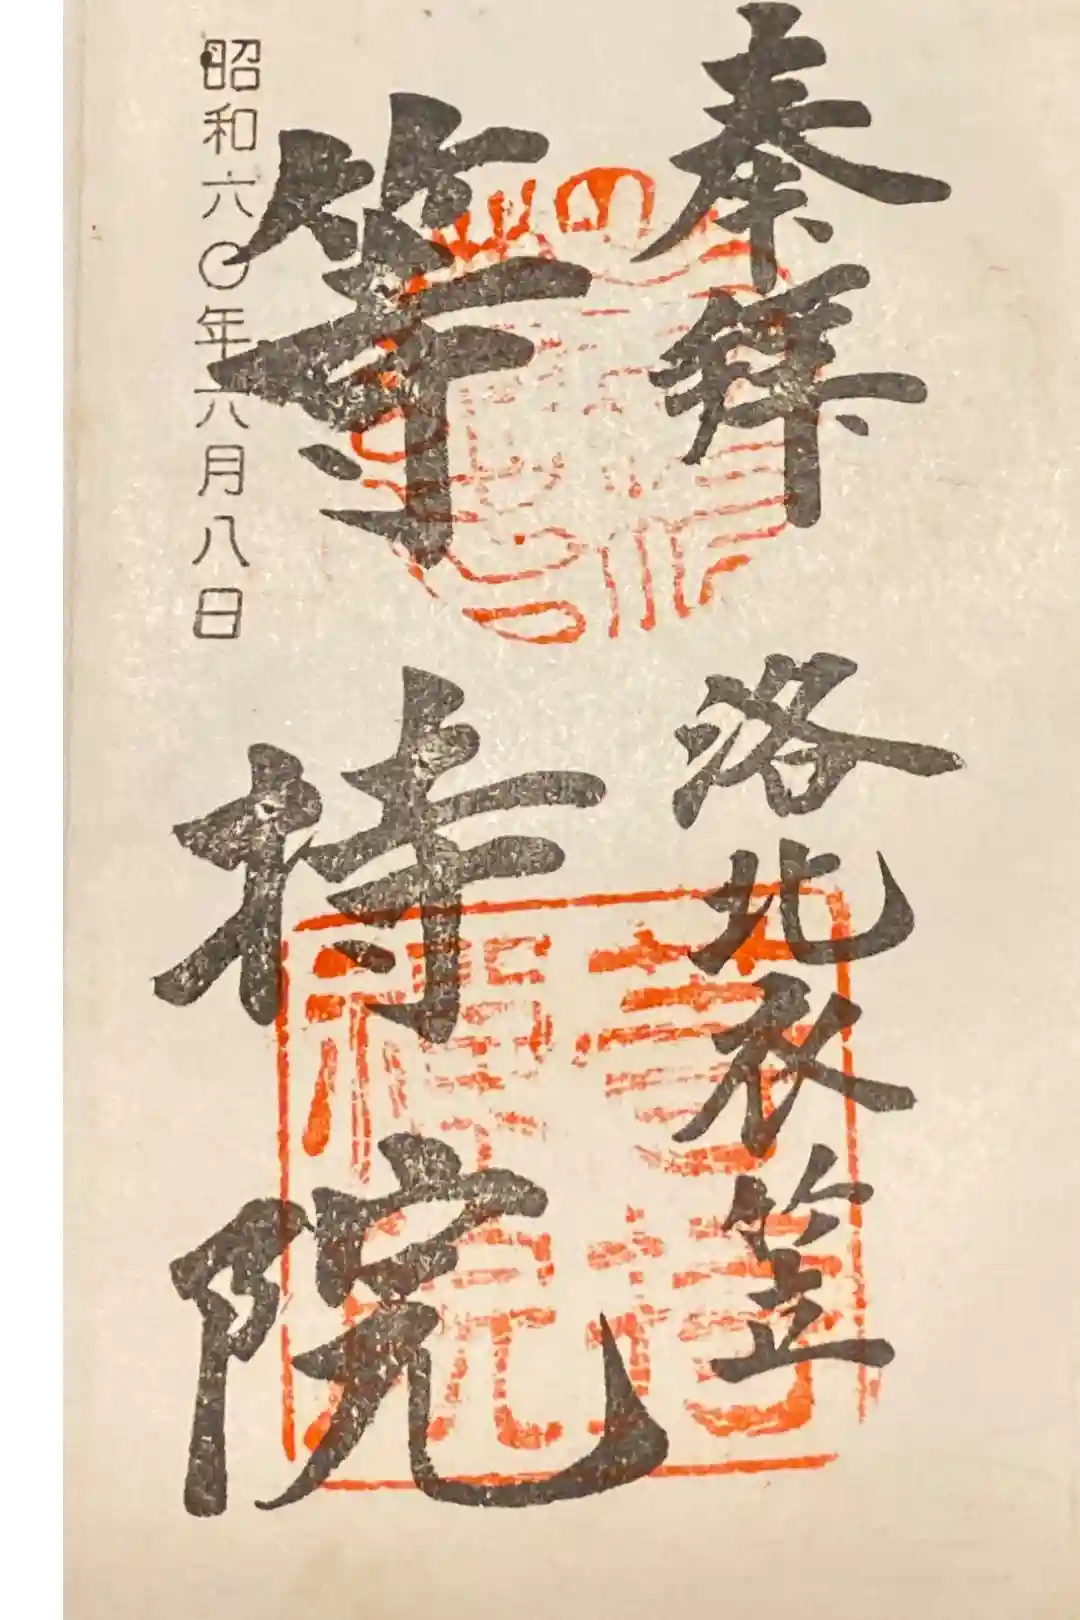 奉拜 洛北衣笠
等持院
昭和六〇年六月八日